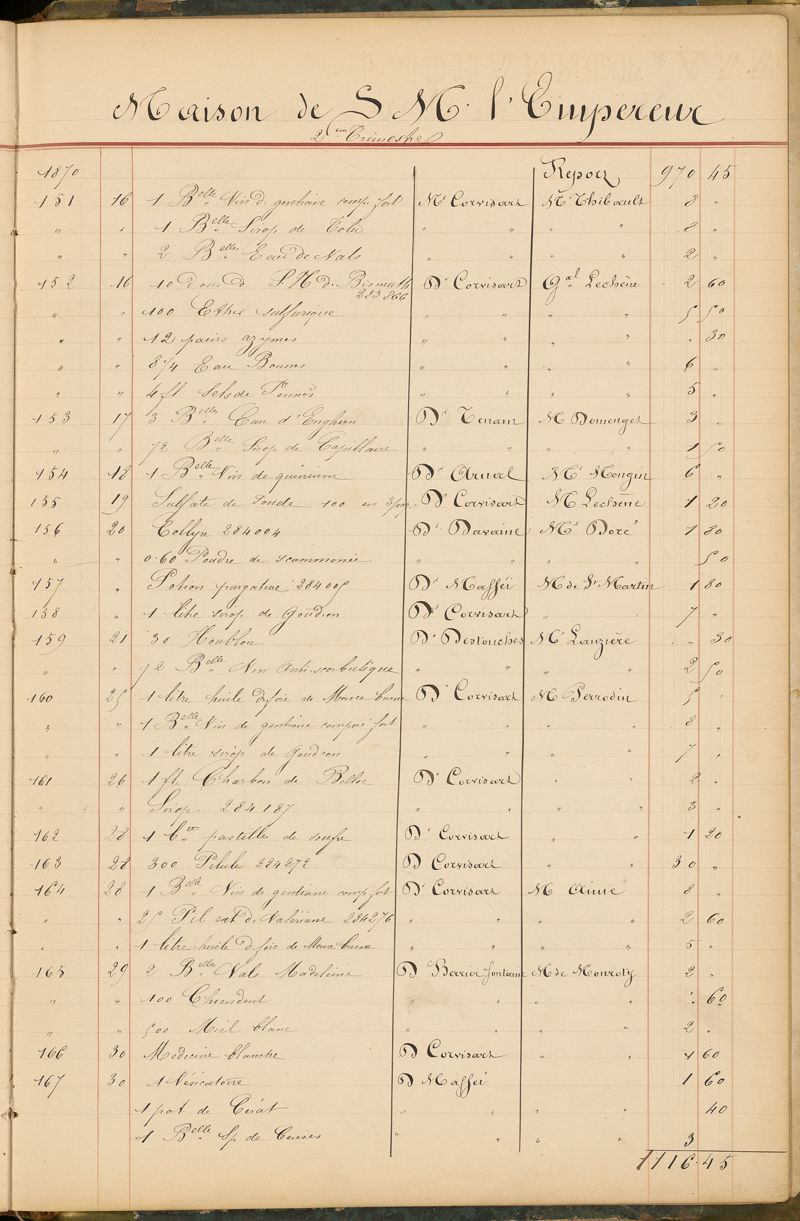 Maison de S M. l'Empereur
2eme Trimestre
1870 Report 970 45
151 16 1 Belle Vin d. gentiane comp fort Mr Corvisart Mr Thibault 8 "
" " 1 Belle Sirop de Tolu " " " " 8 "
" " 2 Belles Eau de Vals " " " " 2 "
152 16 10 S. N d. Bismuth Dr Corvisart Gal Lechêne 2 60
283866
" " 100 Ether sulfurique " " " " 5 50
" " 12 pains azymes " " " " " 30
" " 8/4 Eau Bonnes " " " " 6 "
" " 4 fl Sels de Pennès " " " " 5 "
153 17 3 Belles Eau d'Enghien Dr Tenain M Domenget 3 "
" " 1/2 Belle Sirop de Capillaire " " " " 1 50
154 18 1 Belle Vin de quinium Dr Arnal Mr Mongin 6 "
155 19 Sulfate de Soude 100 en Dr Corvisart M Lechêne 1 20
156 20 Collyre 284004 Dr Davaine Mr Doré 1 80
" " 0.60 Poudre de scammonée " " " " 50
157 " Potion purgative 284005 Dr Mafféi M de St Martin 1 80
158 " 1 litre sirop de goudron Dr Corvisart " " 7 "
159 21 30 Houblon Dr Destouches Mr Lanzière " 30
" " 1/2 Belle Vin Antiscorbutique " " " " 2 50
160 25 1 litre huile d. foie de Morue brune Dr Corvisart M Perrodin 5 "
" " 1 Belle Vin de gentiane composé fort " " " " 8 "
" " 1 litre sirop de goudron " " " " 7 "
161 26 1 fl. Charbon de Belloc Dr Corvisart " " 2 "
" " Sirop 284187 " " " " 3 "
162 28 1 bte pastilles de soufre Dr Corvisart " " 1 20
163 28 300 Pilule 284272 D Corvisart " " 30 "
164 28 1 Belle Vin de gentiane comp fort Dr Corvisart M Aimé 8 "
" " 25 Pil ext d. Valériane 284276 " " " " 2 60
" " 1 litre huile d. foie de Morue brune " " " " 5 "
165 29 2 Belles Vals Madeleine D Berrier fontaine M de Mouroty 2 "
" " 100 Chiendent " " " " " 60
" " 500 Miel blanc " " " " 2 "
166 30 Médecine blanche D Corvisart " " 4 60
167 30 1 Vésicatoire D Mafféi " " 1 60
1 pot de Cérat " " " " 40
1 Belle Sp de Cerises " " " " 3
1116.45